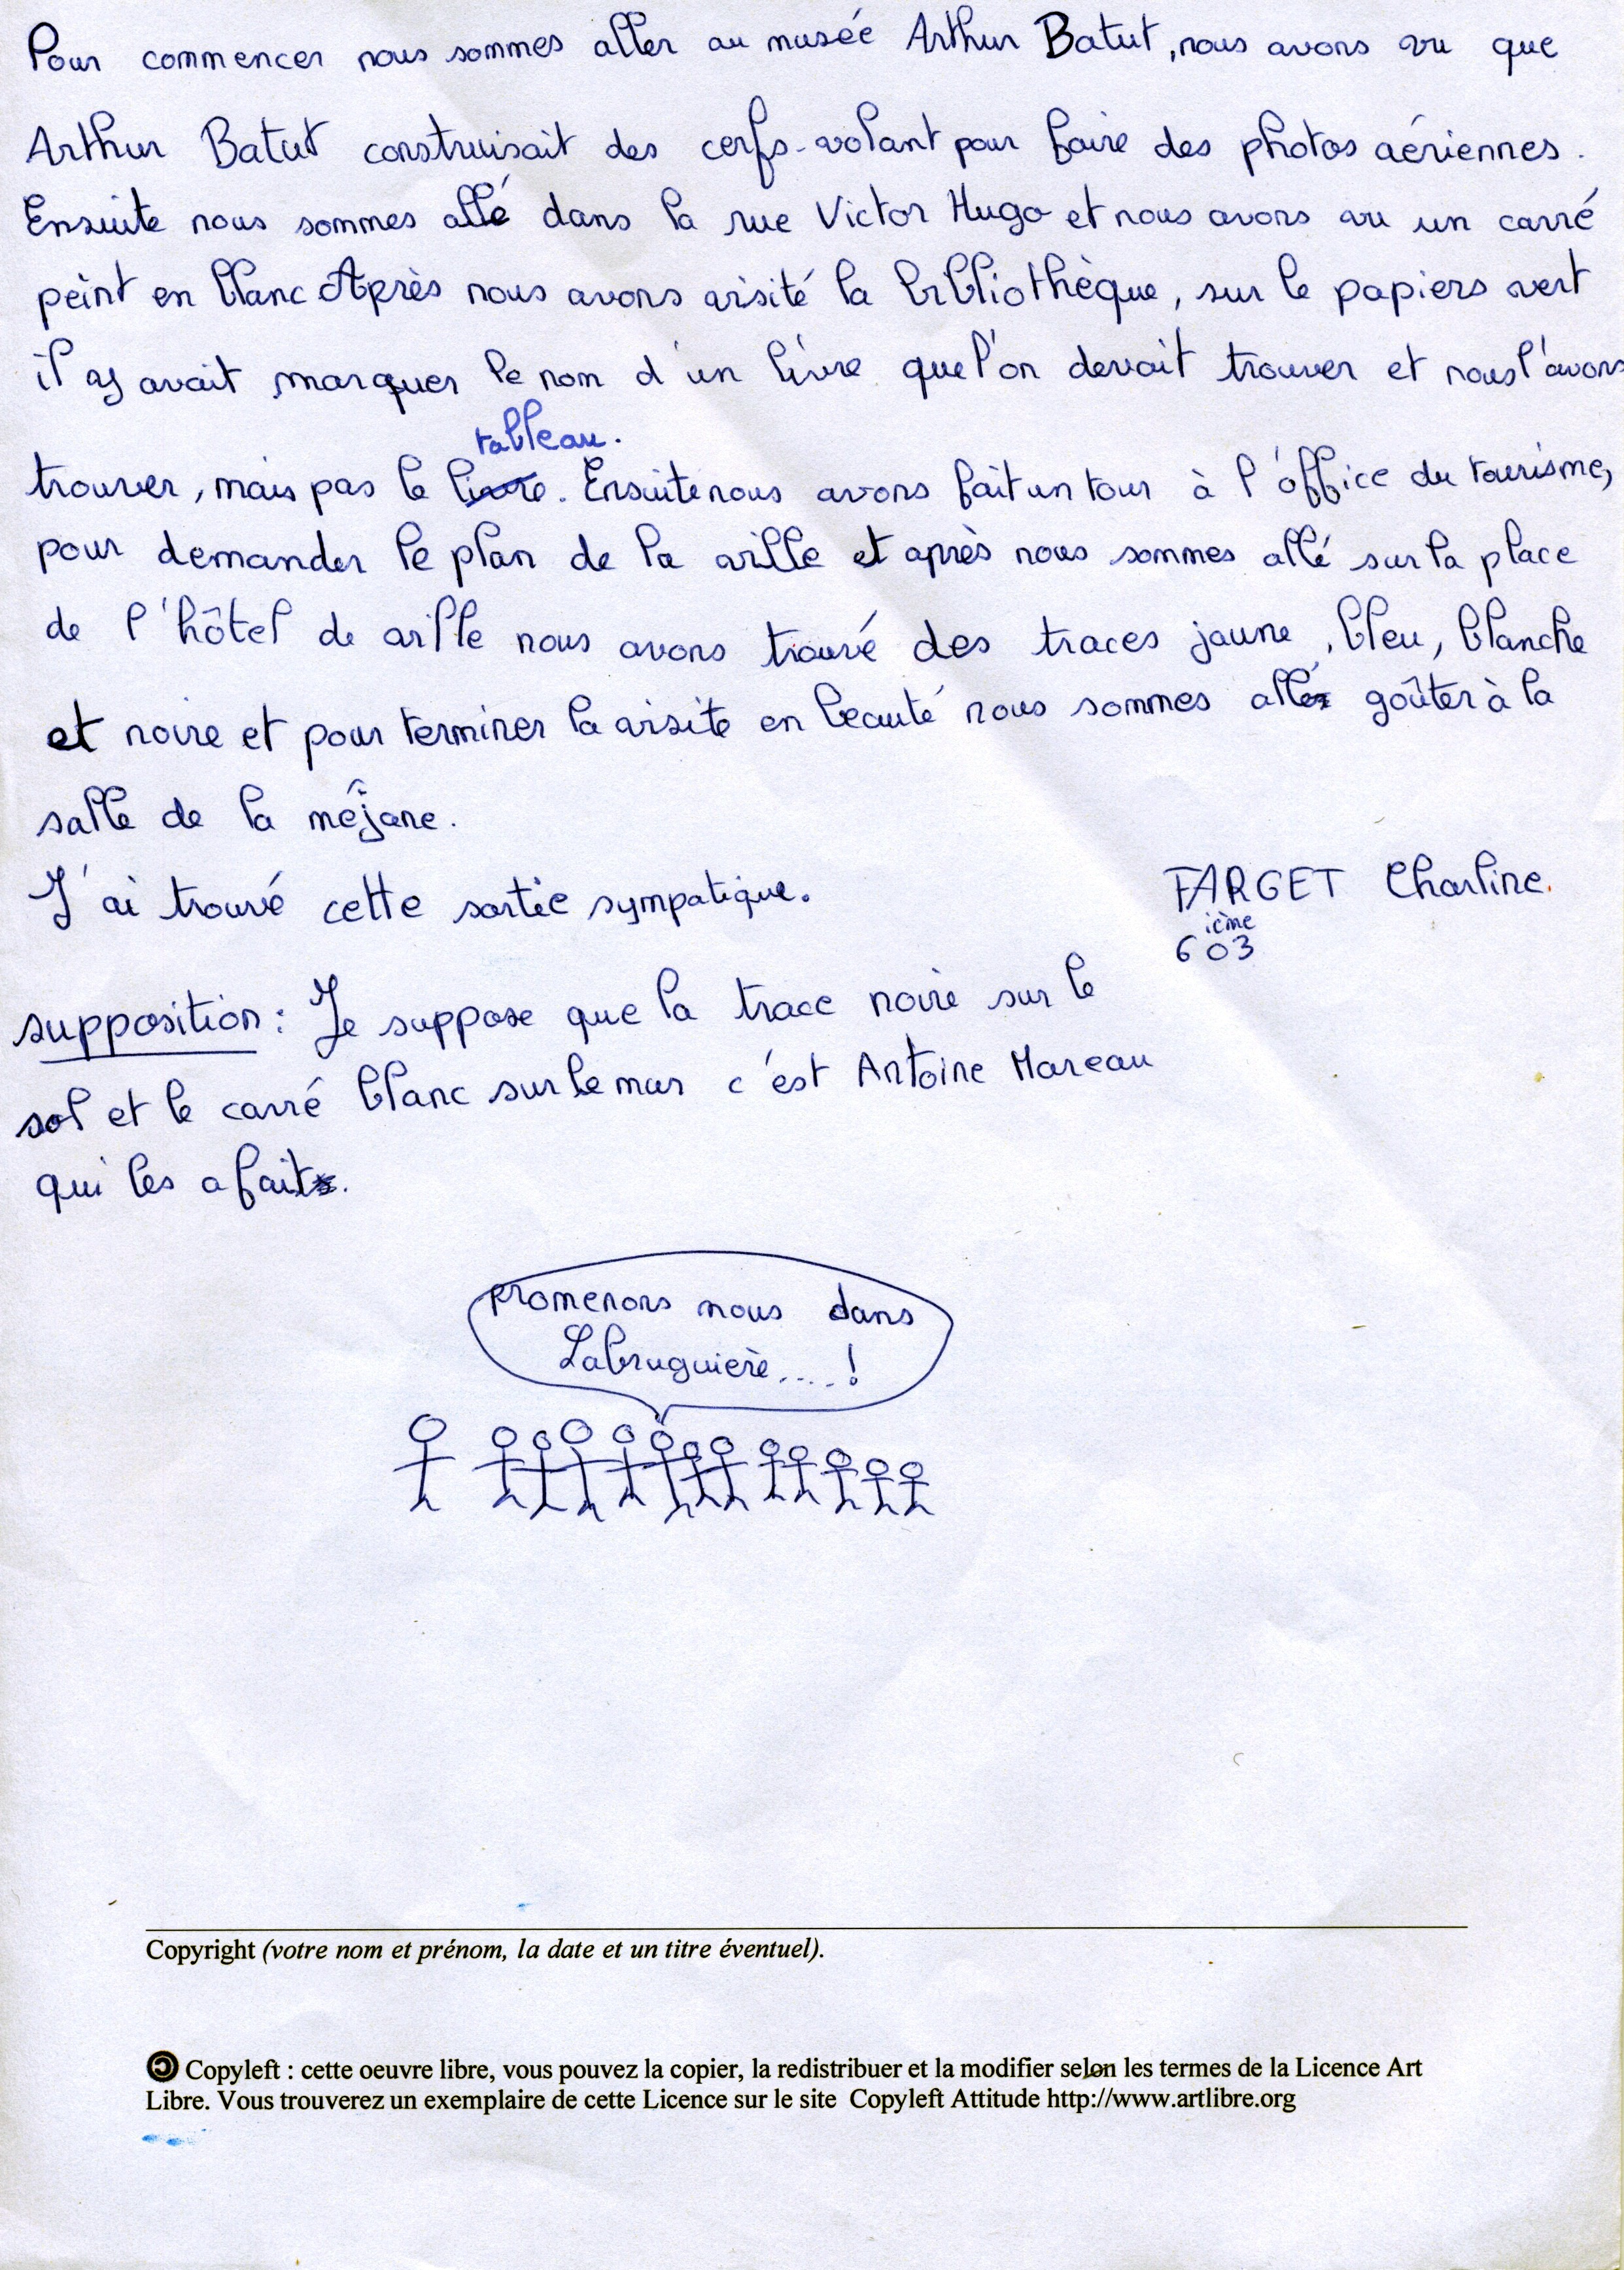 Pour commencer nous sommes aller au musée Arthur Batut, nous avons vu que
Arthur Batut construisait des cerfs-volant pour faire des photos aériennes.
Ensuite nous sommes allé dans la rue Victor Hugo et nous avons vu un carré
peint en blanc Après nous avons visité la bibliothèque, sur le papiers vert
il y avait marquer le nom d'un livre que l'on devait trouver et nous l'avons
tableau.
trouver, mais pas le livre. Ensuite nous avons fait un tour à l'office du tourisme,
pour demander le plan de la ville et après nous sommes allé sur la place
de l'hôtel de ville nous avons trouvé des traces jaune, bleu, blanche
et noire et pour terminer la visite en beauté nous sommes allé goûter à la
salle de la méjane.
J'ai trouvé cette sortie sympatique.
FARGET Charline.
ième
603
supposition : Je suppose que la trace noire sur le
sol et le carré blanc sur le mur c'est Antoine Moreau
qui les a fait.
promenons nous dans
Labruguière....!
Copyright (votre nom et prénom, la date et un titre éventuel).
Copyleft : cette oeuvre libre, vous pouvez la copier, la redistribuer et la modifier selon les termes de la Licence Art
Libre. Vous trouverez un exemplaire de cette Licence sur le site Copyleft Attitude http://www.artlibre.org